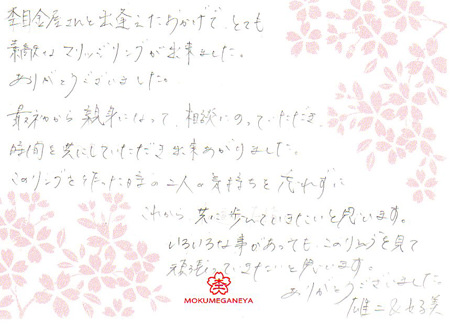 杢目金屋さんと出逢えたおかげで、とても
素敵なマリッジリングが出来ました。
ありがとうございました。
最初から親身になって、相談にのっていただき
時間を共にしていただき出来あがりました。
このリングを作った時の二人の気持ちを忘れずに
これから共に歩んでいきたいと思います。
いろいろな事があっても、このリングを見て
頑張っていきたいと思います。
ありがとうございました。
雄二&
MOKUMEGANEYA